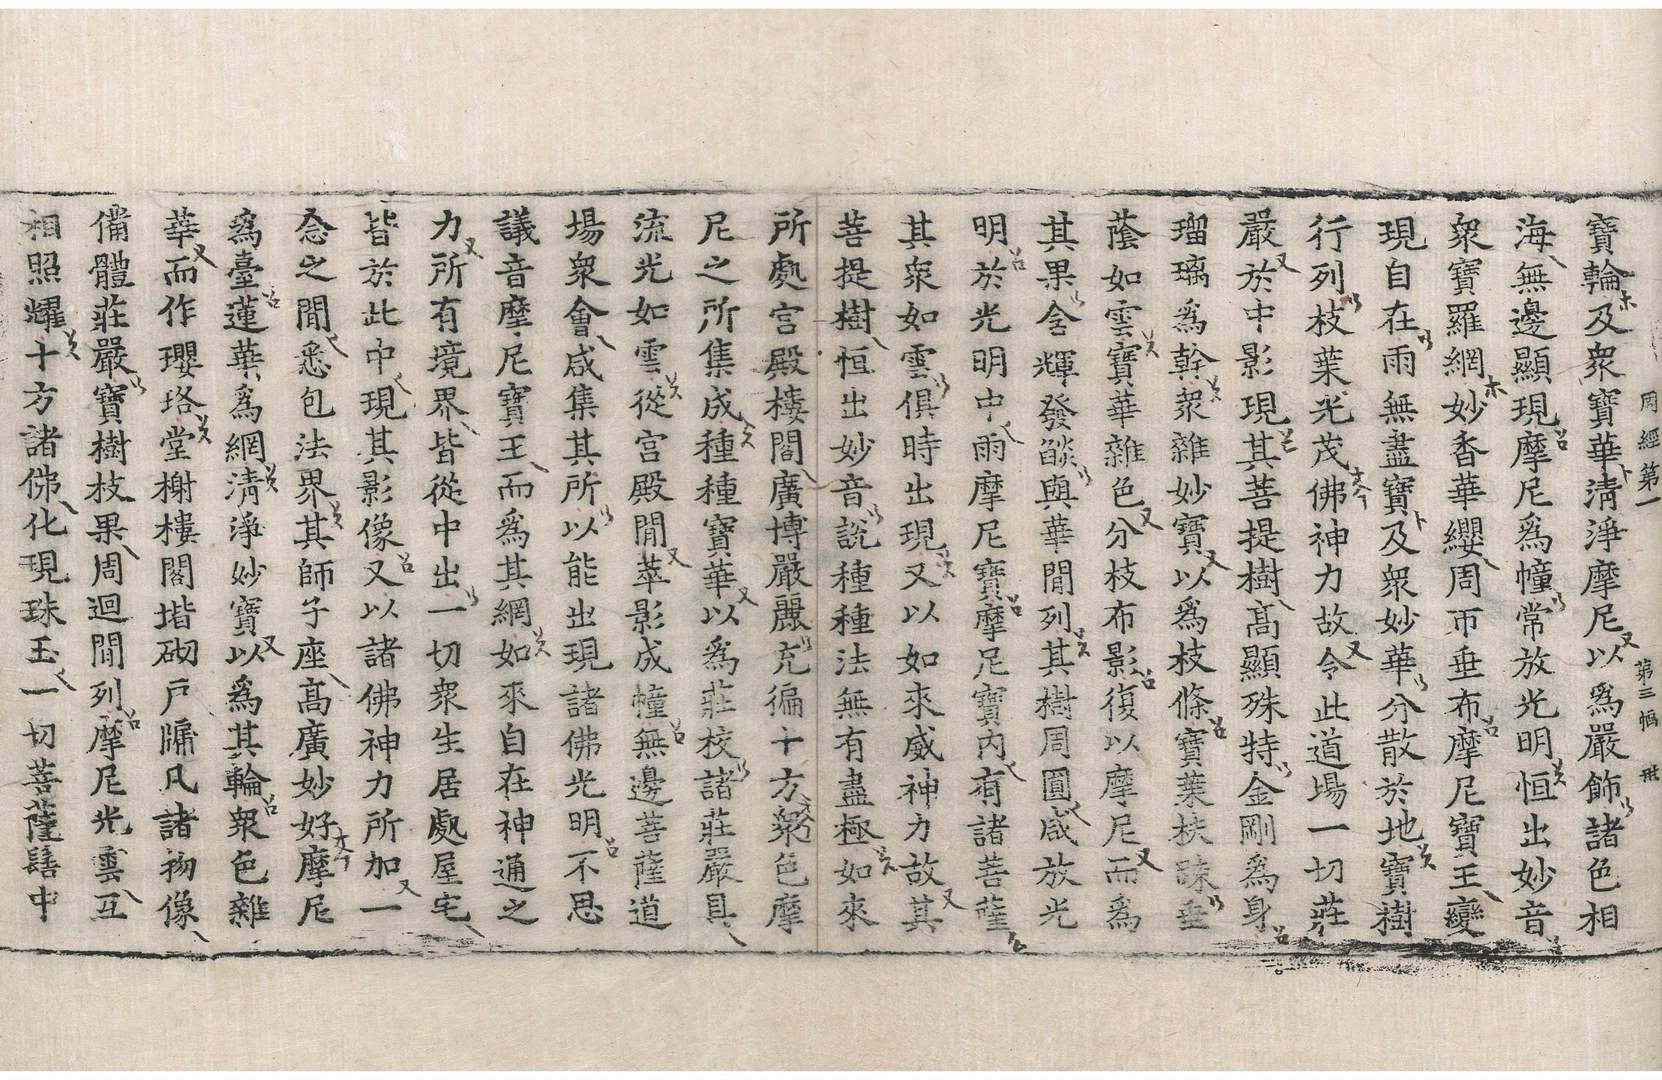 周經第一 第三幅
寶輪及衆寶華清淨摩尼以爲嚴飾諸色相
海無邊顯現摩尼爲幢常放光明恒出妙音
衆寶羅網妙香華纓周帀垂布摩尼寶王變
現自在雨無盡寶及衆妙華分散於地寶樹
行列枝葉光茂佛神力故令此道場一切莊
嚴於中影現其菩提樹高顯殊特金剛爲身
瑠璃爲幹衆雜妙寶以爲枝條寶葉扶踈垂
蔭如雲寶華雜色分枝布影復以摩尼而爲
其果含輝發𦦨與華間列其樹周圓咸放光
明於光明中雨摩尼寶摩尼寶內有諸菩薩
其衆如雲俱時出現又以如來威神力故其
菩提樹恒出妙音說種種法無有盡極如來
所處宮殿樓閣廣博嚴麗充徧十方衆色摩
尼之所集成種種寶華以爲莊校諸莊嚴具
流光如雲從宮殿間萃影成幢無邊菩薩道
場衆會咸集其所以能出現諸佛光明不思
議音摩尼寶王而爲其網如來自在神通之
力所有境界皆從中出一切衆生居處屋宅
皆於此中現其影像又以諸佛神力所加一
念之間悉包法界其師子座高廣妙好摩尼
爲臺蓮華爲網清淨妙寶以爲其輪衆色雜
華而作瓔珞堂榭樓閣堦砌戶牖凡諸物像
備體莊嚴寶樹枝果周迴間列摩尼光雲互
相照耀十方諸佛化現珠玉一切菩薩髻中